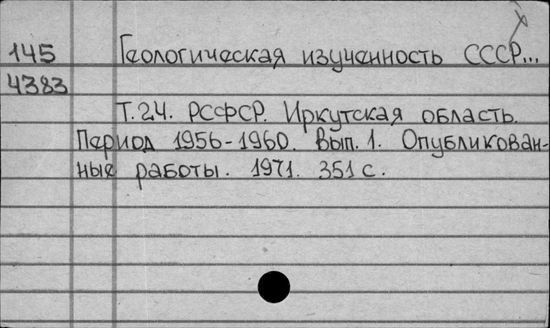 145 Геологическая изученность СССР...
4383
Т.24. РСФСР. Иркутская область.
Период 1956-1960. Вып. 1. Опубликован-
ные работы. 1971. 351 с.